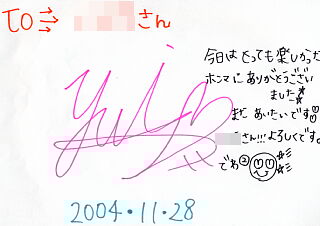 TO⇒ さん
今日はとっても楽しかった
ホンマにありがとうござい
ました☆
また あいたいです♡
さん!!!よろしくです。
でわ②
2004・11・28